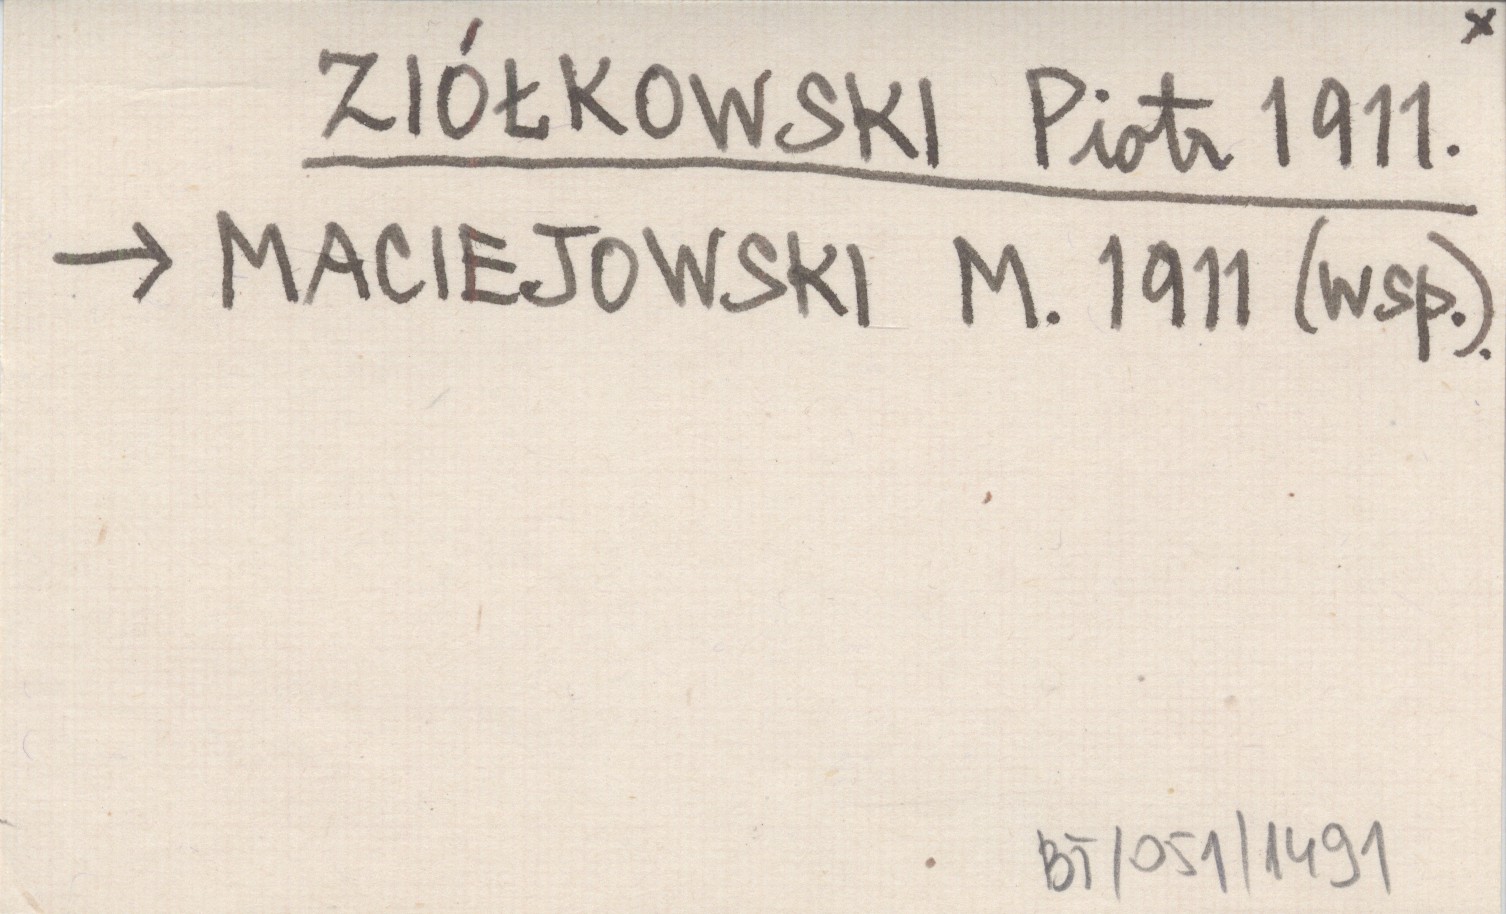 x
ZIÓŁKOWSKI Piotr 1911.
→ MACIEJOWSKI M. 1911 (wsp.).
BT/051/1491